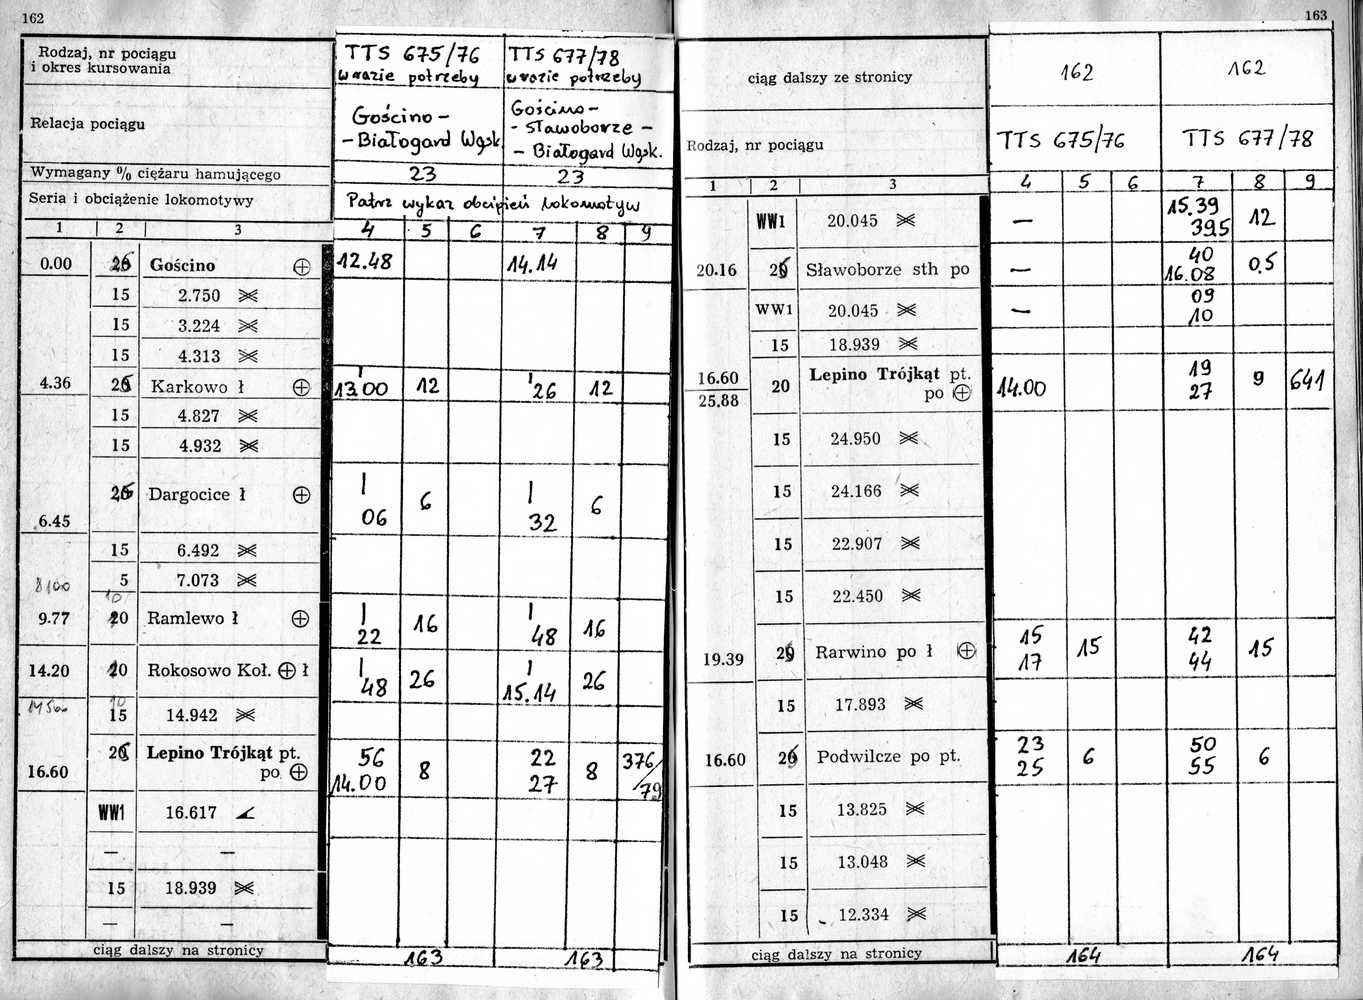 162
Rodzaj, nr pociągu
i okres kursowania
TTS 675/76
w razie potrzeby
TTS 677/78
w razie potrzeby
Relacja pociągu
Gościno –
– Białogard Wąsk.
Gościno –
- Sławoborze –
– Białogard Wąsk.
Wymagany % ciężaru hamującego
23
23
Seria i obciążenie lokomotywy
Patrz wykaz obciążeń lokomotyw
1 2 3 4 5 6 7 8 9
0.00 Gościno 12.48 14.14
15 2.750
15 3.224
15 4.313
4.36 Karkowo ł 13.00 12 26 12
15 4.827
15 4.932
Dargocice ł
6.45 06 6 32 6
15 6.492
5 7.073
10
9.77 20 Ramlewo ł 22 16 48 16
14.20 Rokosowo Koł. ł 48 26 15.14 26
10
15 14.942
Lepino Trójkąt pt. 56 22 376/
16.60 po 14.00 8 27 8 79
WW1 16.617
— —
15 18.939
— —
ciąg dalszy na stronicy 163 163
163
ciąg dalszy ze stronicy 162 162
Rodzaj, nr pociągu TTS 675/76 TTS 677/78
1 2 3 4 5 6 7 8 9
WW1 20.045 — 15.39 12
39.5
20.16 Sławoborze sth po — 40 0,5
16.08
WW1 20.045 — 09
10
15 18.939
16.60 20 Lepino Trójkąt pt. 14.00 19 9 641
25.88 po 27
15 24.950
15 24.166
15 22.907
15 22.450
15 15 42 15
19.39 Rarwino po ł 17 44
15 17.893
23 50
16.60 Podwilcze po pt. 25 6 55 6
15 13.825
15 13.048
15 12.334
ciąg dalszy na stronicy 164 164